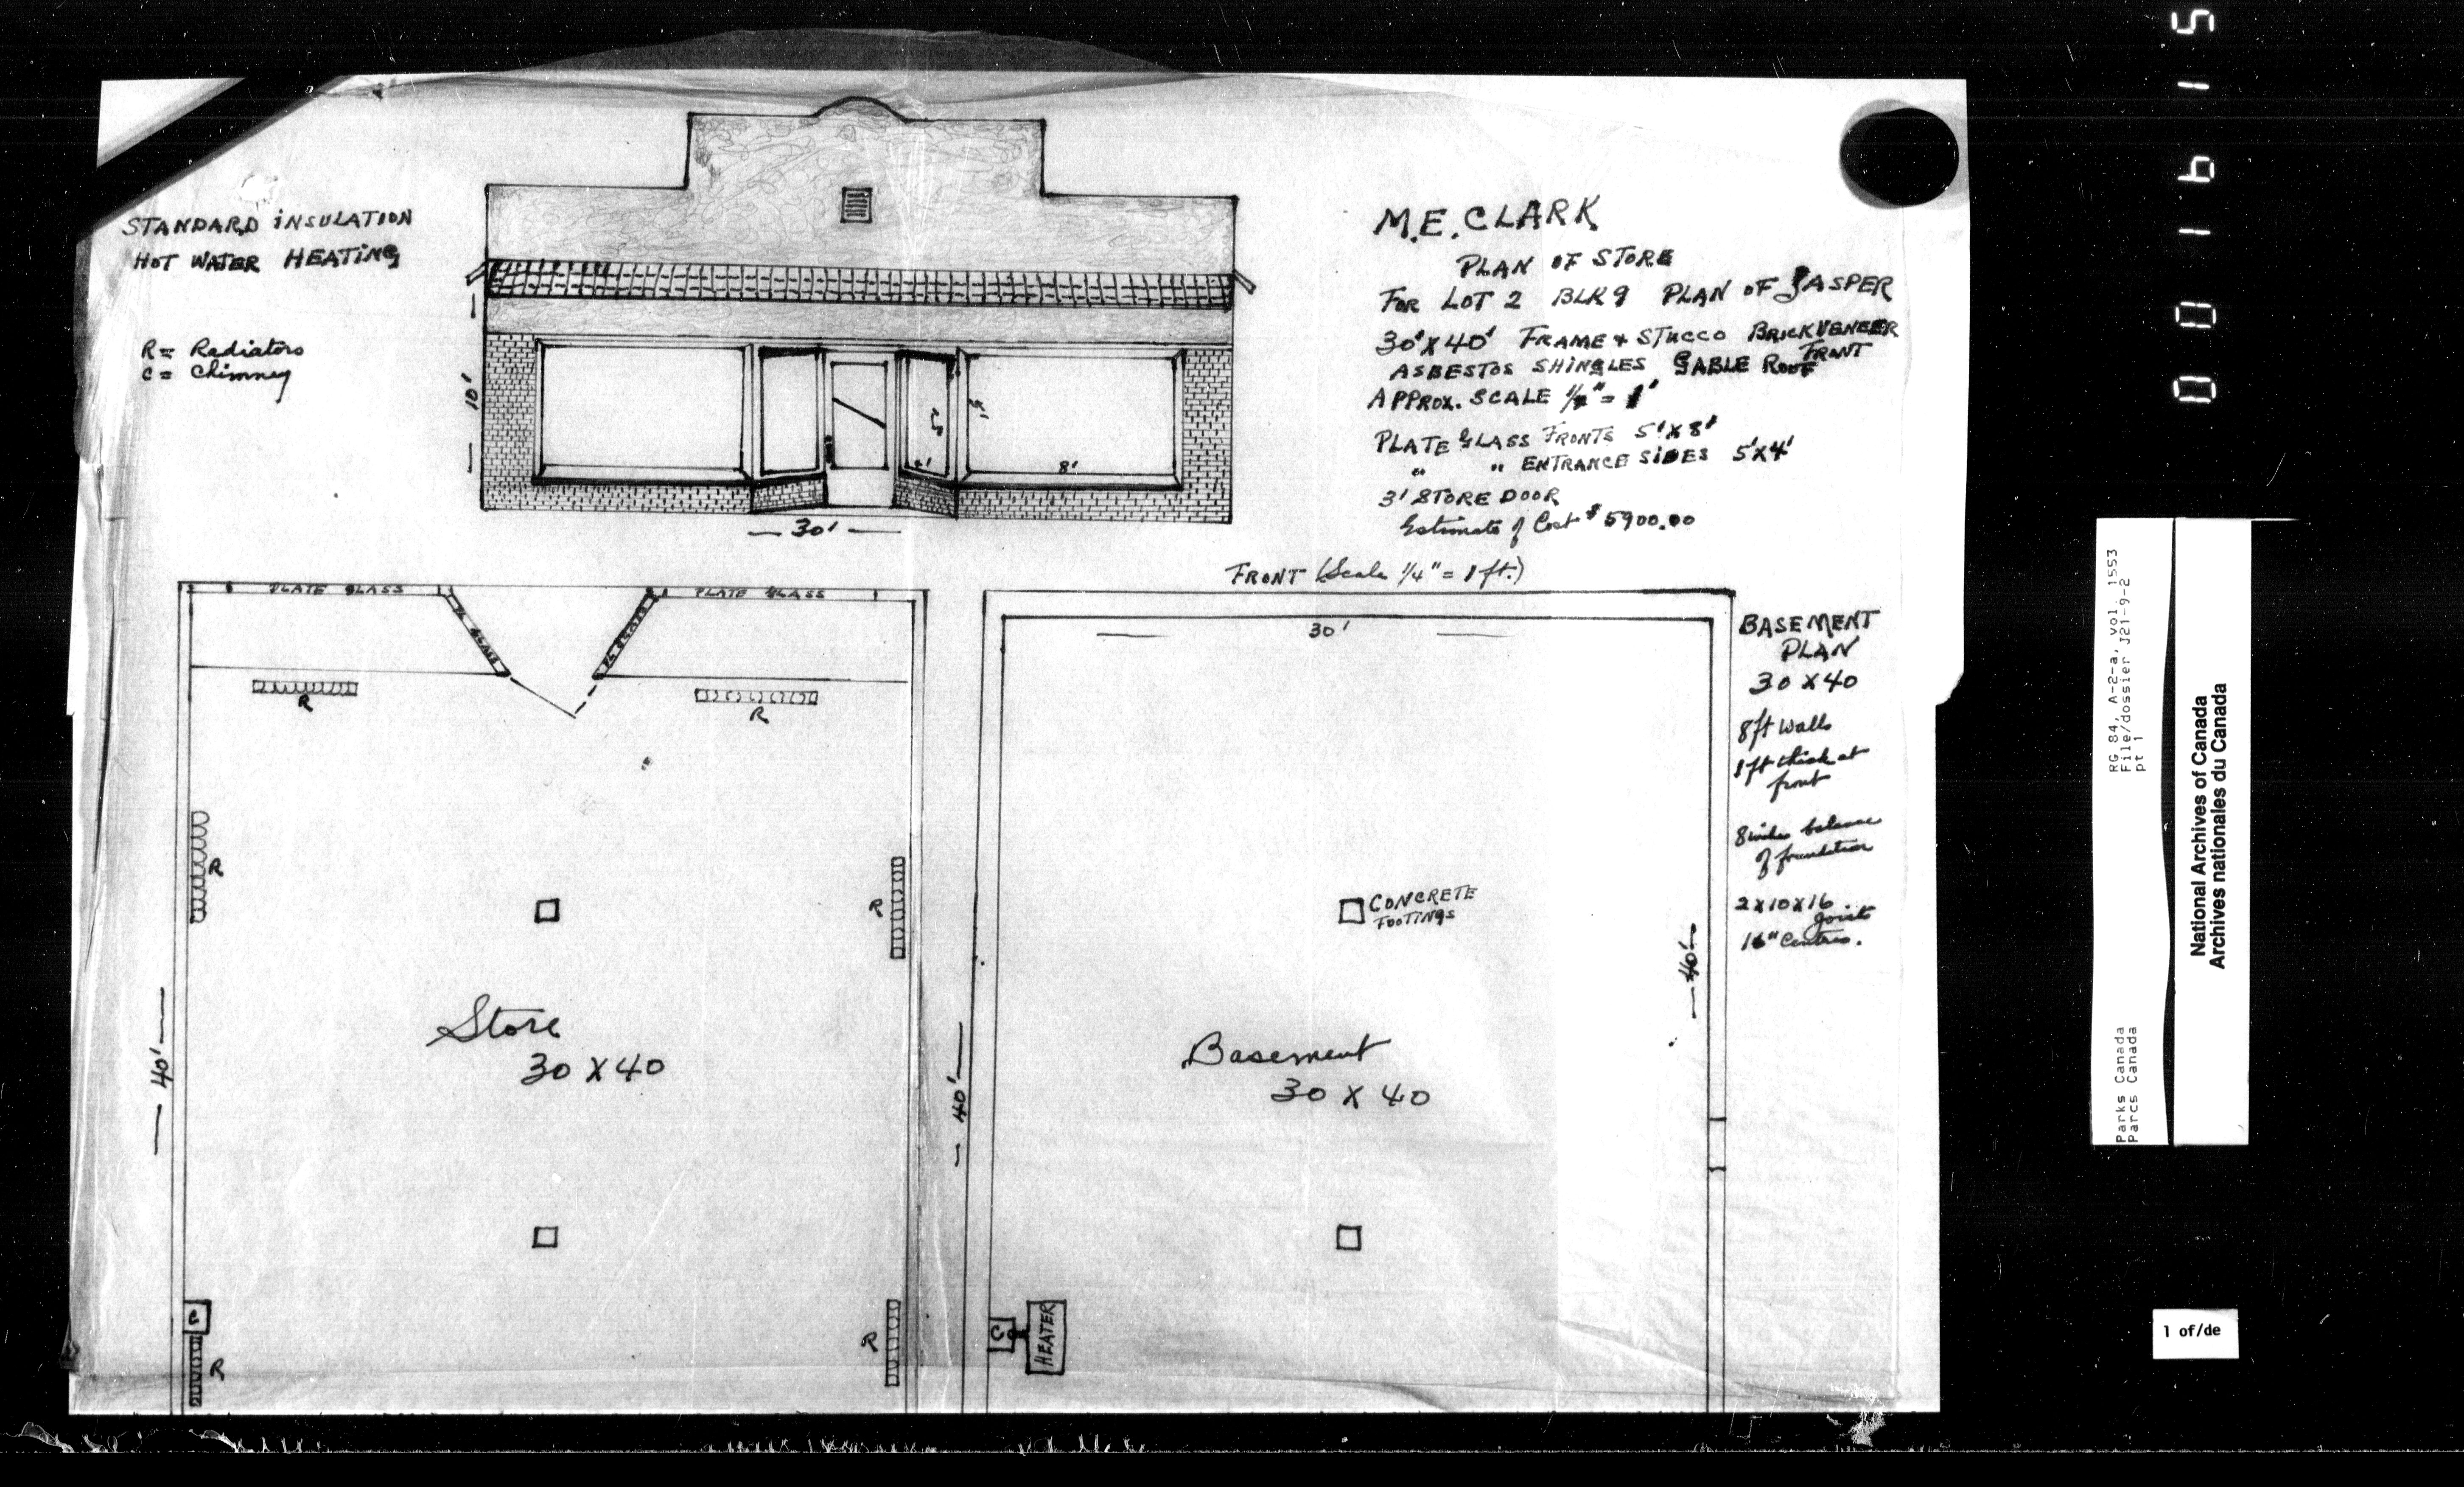 STANDARD INSULATION
HOT WATER HEATING
R = Radiators
C = Chimney
10'
5'
8'
30'
M.E. CLARK
PLAN OF STORE
FOR LOT 2 BLK 9 PLAN OF JASPER
30' X 40' FRAME & STUCCO BRICK VENEER
FRONT
ASBESTOS SHINGLES GABLE ROOF
APPROX. SCALE 1/4" = 1'
PLATE GLASS FRONTS 5' X 8'
" " ENTRANCE SIDES 5' X 4'
3' STORE DOOR
Estimate of Cost $5900.00
FRONT (Scale 1/4" = 1 ft.)
PLATE GLASS
PLATE GLASS
PL GLASS
PL GLASS
R
R
R
R
40'
Store
30 X 40
C
R
R
30'
CONCRETE
FOOTINGS
40'
40'
Basement
30 X 40
C
HEATER
BASEMENT
PLAN
30 X 40
8 ft walls
1 ft thick at
front
8 inches balance
of foundation
2 X 10 X 16
Joists
16" Centres.
001615
RG 84, A-2-a, vol. 1553
File/dossier J21-9-2
pt 1
Parks Canada
Parcs Canada
National Archives of Canada
Archives nationales du Canada
1 of/de